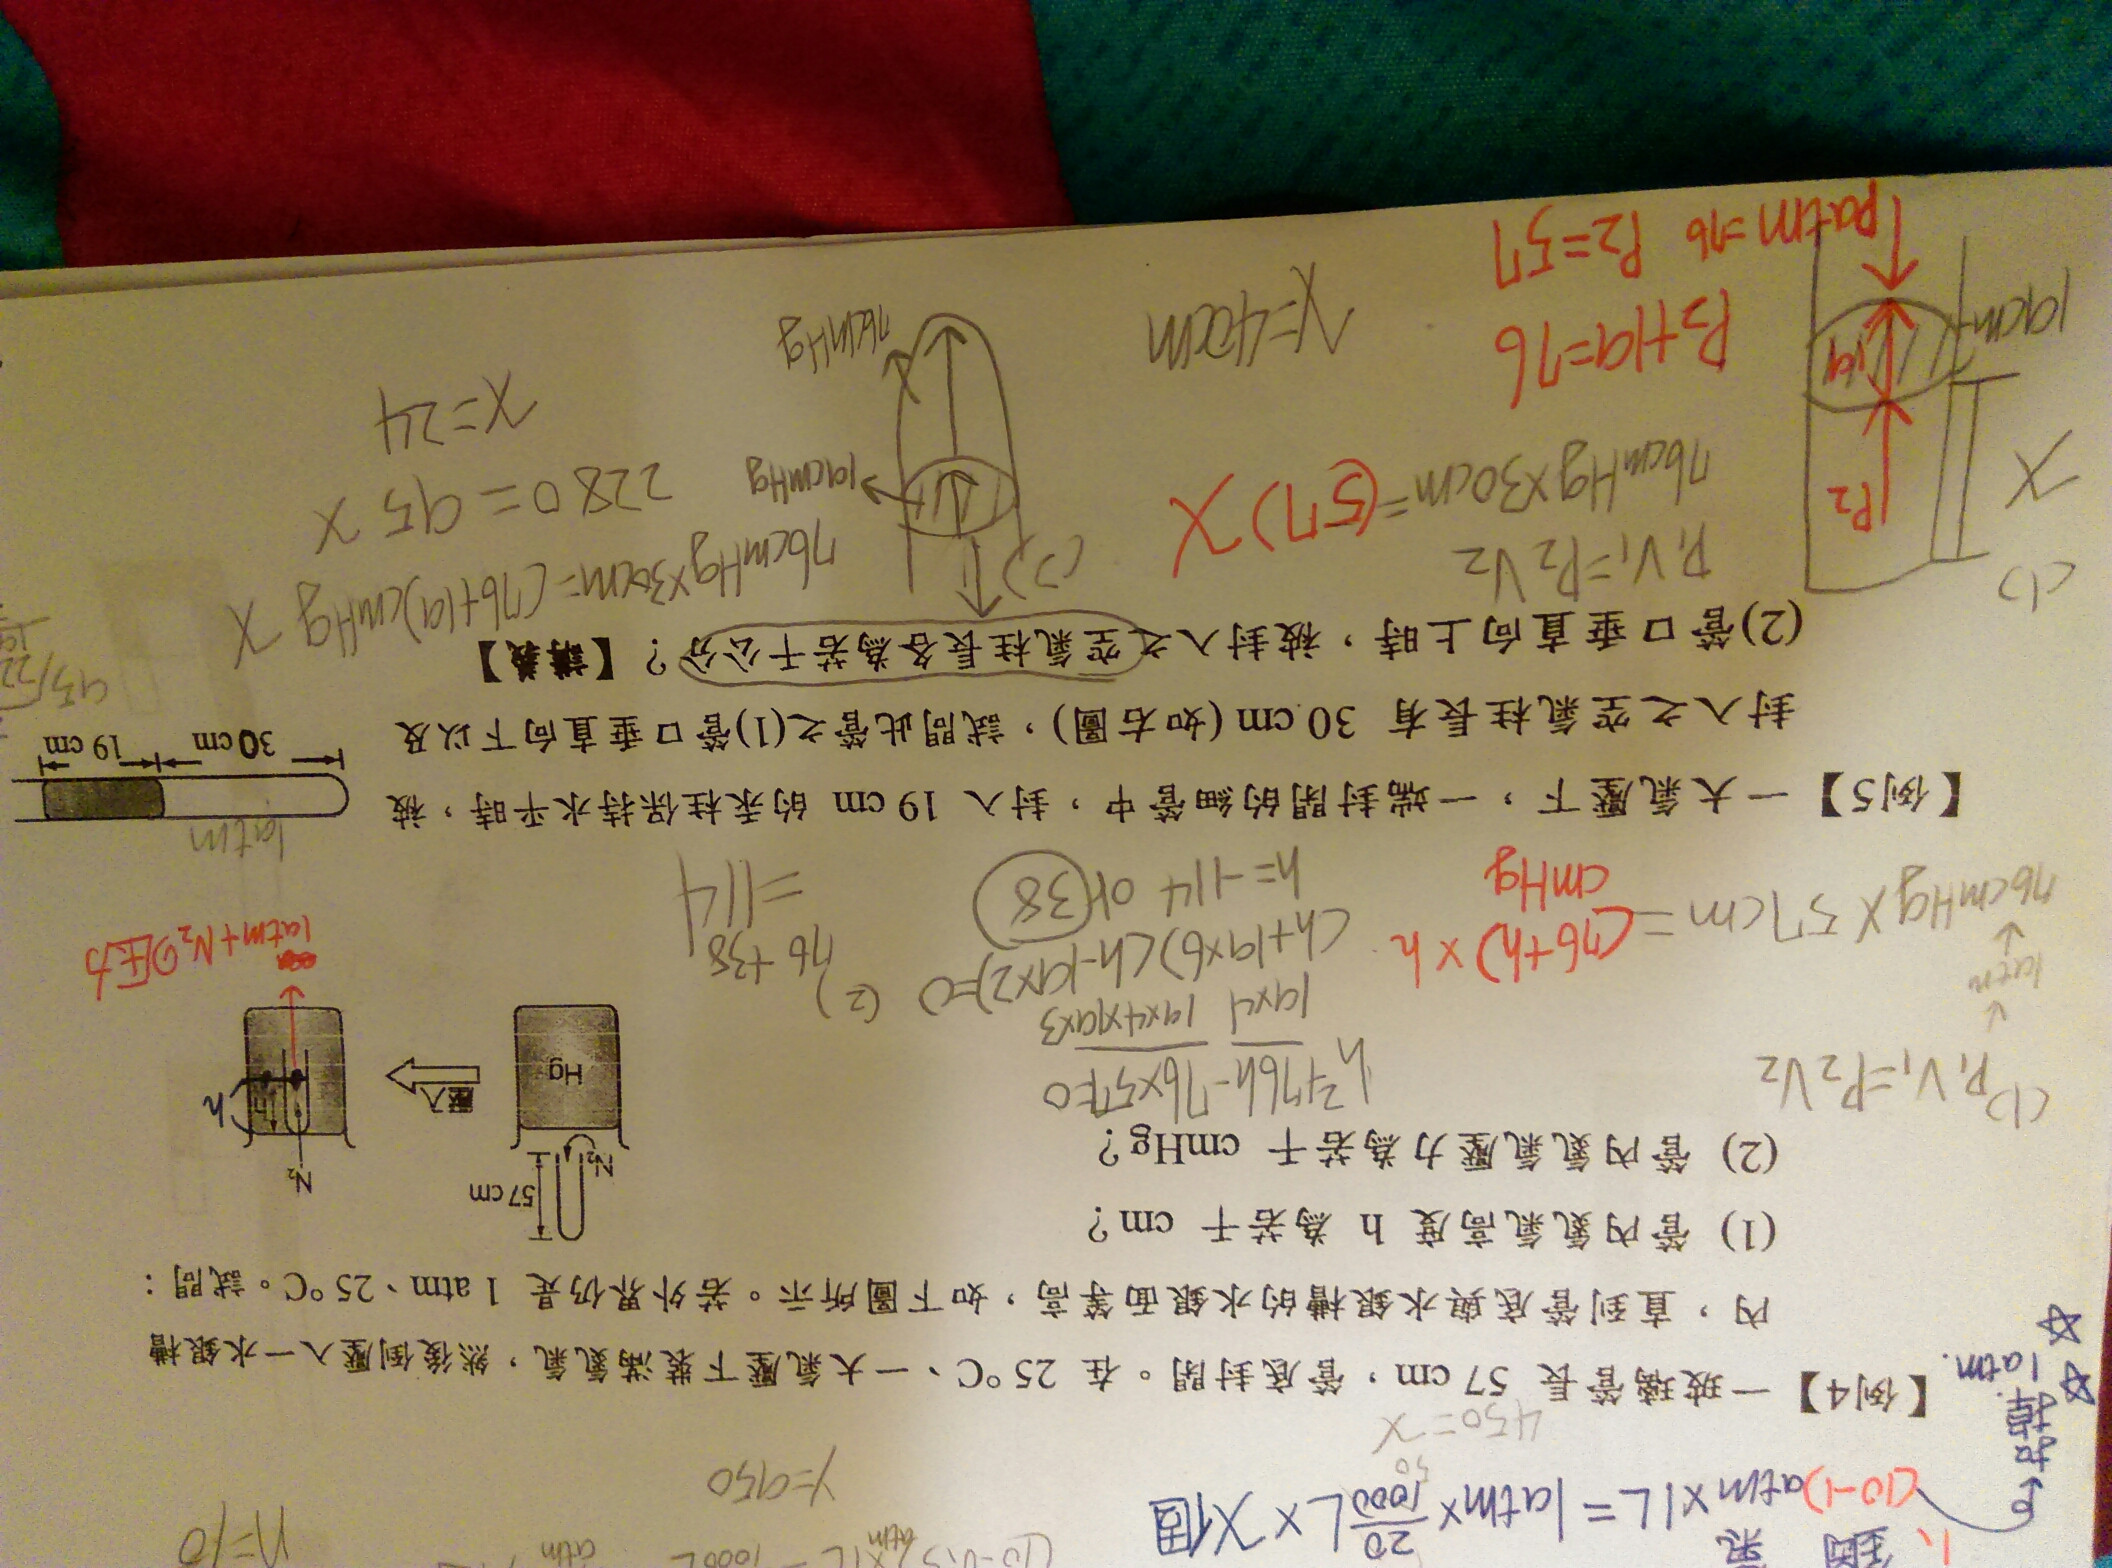 n=10
y=950
(10-1)atm×1L=1atm×20/1000L×X個
扣掉
1atm.
450=x
【例4】一玻璃管長 57 cm,管底封閉。在 25°C、一大氣壓下裝滿氮氣,然後倒壓入一水銀槽
內,直到管底與水銀槽的水銀面等高,如下圖所示。若外界仍是 1 atm、25°C。試問:
(1) 管內氮氣高度 h 為若干 cm?
(2) 管內氮氣壓力為若干 cmHg?
57 cm
N₂
Hg
壓入
N₂
h
h
1atm+N₂の压力
(1) P₁V₁=P₂V₂
1atm
76cmHg×57cm=(76+h)×h
cmHg
h²+76h-76×57=0
19×4 19×4×19×3
(h+19×6)(h-19×2)=0
h=-114 or 38
(2)
76+38
=114
【例5】一大氣壓下,一端封閉的細管中,封入 19 cm 的汞柱保持水平時,被
封入之空氣柱長有 30 cm (如右圖),試問此管之(1)管口垂直向下以及
(2)管口垂直向上時,被封入之空氣柱長各為若干公分?【講義】
1atm
30 cm
19 cm
(1)
X
19cm
P₂
19
P₁V₁=P₂V₂
76cmHg×30cm=(57)X
P₂+19=76
Patm=76 P₂=57
X=40cm
(2)
19cmHg
76cmHg
76cmHg×30cm=(76+19)cmHg X
2280=95X
X=24